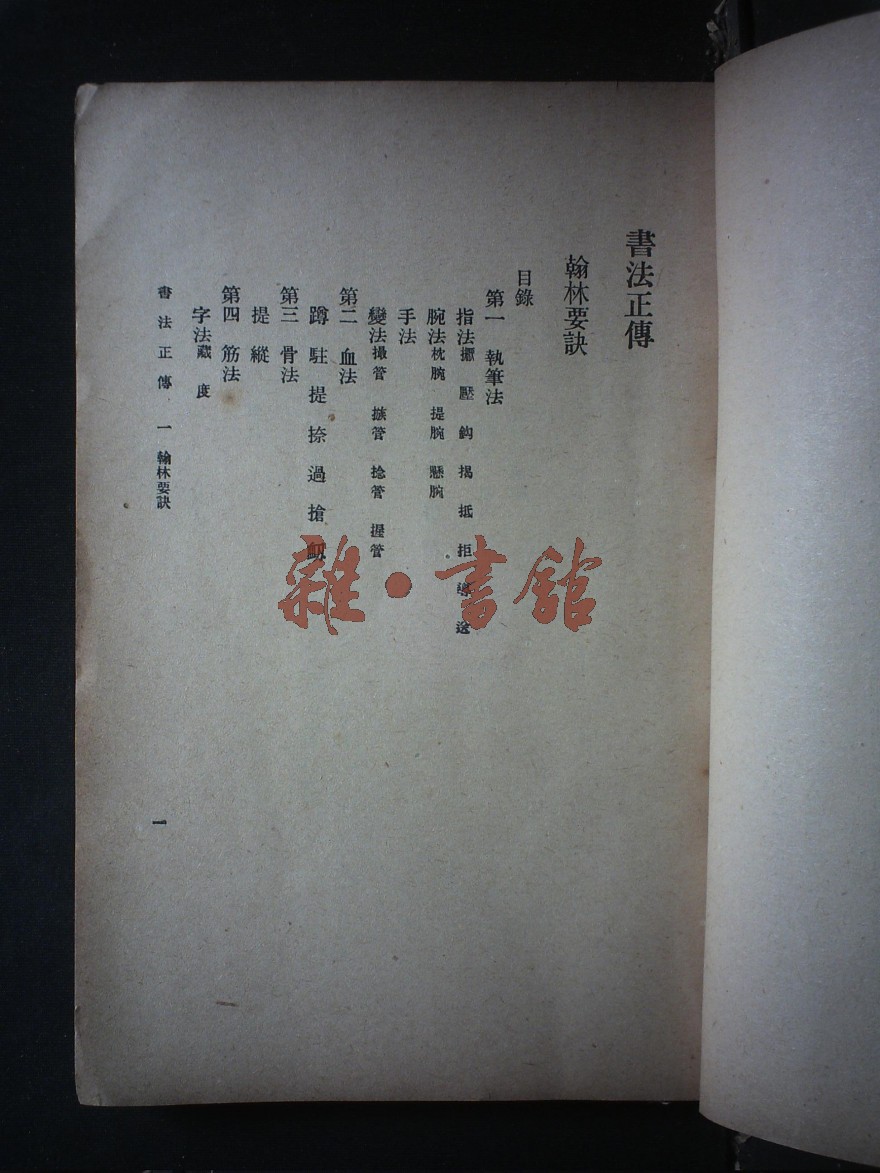 書法正傳
翰林要訣
目錄
第一 執筆法
指法擫 壓 鈎 揭 抵 拒 導 送
腕法枕腕 提腕 懸腕
手法
變法撮管 搦管 捻管 握管
第二 血法
蹲 駐 提 捺 過 搶 衄
第三 骨法
提 縱
第四 筋法
字法藏 度
書法正傳 一 翰林要訣
一
雜·書館